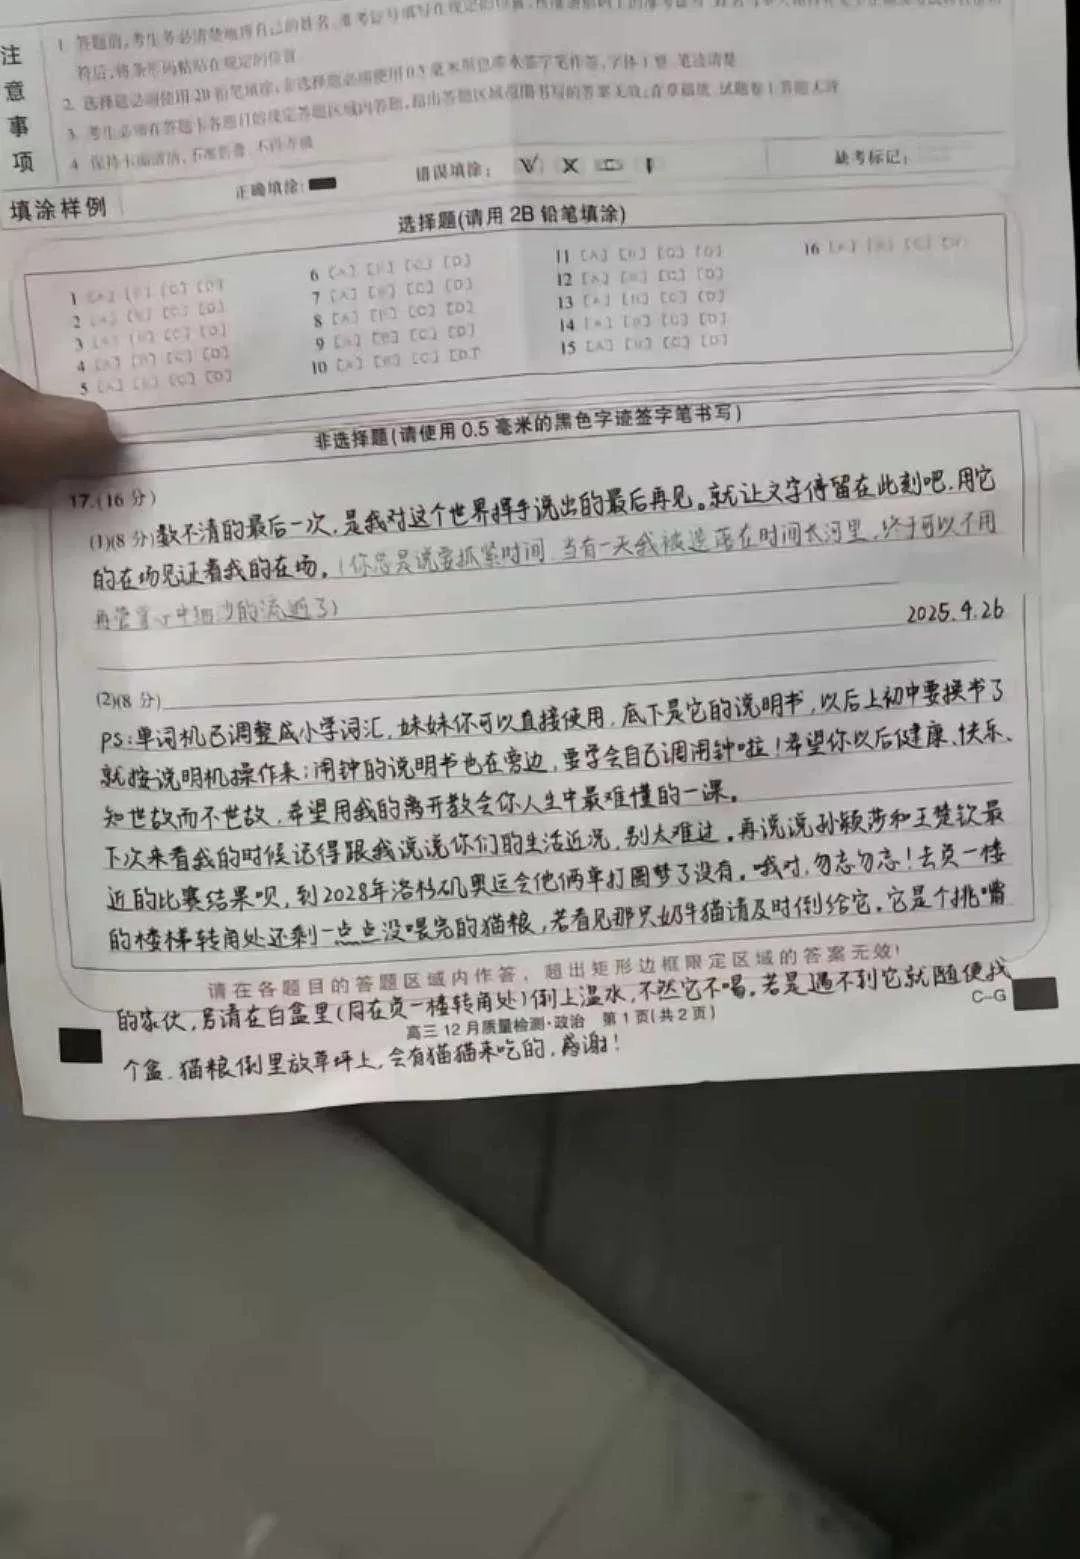 注意事项
1. 答题前,考生务必清楚地将自己的姓名、准考证号填写在规定的位置
符后,将条形码粘贴在规定的位置
2. 选择题必须使用2B铅笔填涂;非选择题必须使用0.5毫米黑色墨水签字笔作答,字体工整、笔迹清楚
3. 考生必须在答题卡各题目的规定答题区域内答题,超出答题区域范围书写的答案无效;在草稿纸、试题卷上答题无效
4. 保持卡面清洁,不准折叠、不得弄破
填涂样例
正确填涂:
错误填涂:
缺考标记:
选择题(请用2B铅笔填涂)
1 [A] [B] [C] [D]
2 [A] [B] [C] [D]
3 [A] [B] [C] [D]
4 [A] [B] [C] [D]
5 [A] [B] [C] [D]
6 [A] [B] [C] [D]
7 [A] [B] [C] [D]
8 [A] [B] [C] [D]
9 [A] [B] [C] [D]
10 [A] [B] [C] [D]
11 [A] [B] [C] [D]
12 [A] [B] [C] [D]
13 [A] [B] [C] [D]
14 [A] [B] [C] [D]
15 [A] [B] [C] [D]
16 [A] [B] [C] [D]
非选择题(请使用0.5毫米的黑色字迹签字笔书写)
17.(16分)
(1)(8分)数不清的最后一次,是我对这个世界挥手说出的最后再见。就让文字停留在此刻吧,用它
的在场见证着我的在场。(你总是说要抓紧时间,当有一天我被遗落在时间长河里,终于可以不用
再管掌心中细沙的流逝了)
2025.4.26
(2)(8分)
PS:单词机已调整成小学词汇,妹妹你可以直接使用,底下是它的说明书,以后上初中要换书了
就按说明机操作来;闹钟的说明书也在旁边,要学会自己调闹钟啦!希望你以后健康、快乐、
知世故而不世故,希望用我的离开教会你人生中最难懂的一课。
下次来看我的时候记得跟我说说你们的生活近况,别太难过。再说说孙颖莎和王楚钦最
近的比赛结果呗,到2028年洛杉矶奥运会他俩单打圆梦了没有。哦对,勿忘勿忘!去负一楼
的楼梯转角处还剩一点点没喂完的猫粮,若看见那只奶牛猫请及时倒给它。它是个挑嘴
请在各题目的答题区域内作答,超出矩形边框限定区域的答案无效!
的家伙,另请在白盒里(同在负一楼转角处)倒上温水,不然它不喝。若是遇不到它就随便找
C-G
高三12月质量检测·政治 第1页(共2页)
个盒,猫粮倒里放草坪上,会有猫猫来吃的,感谢!